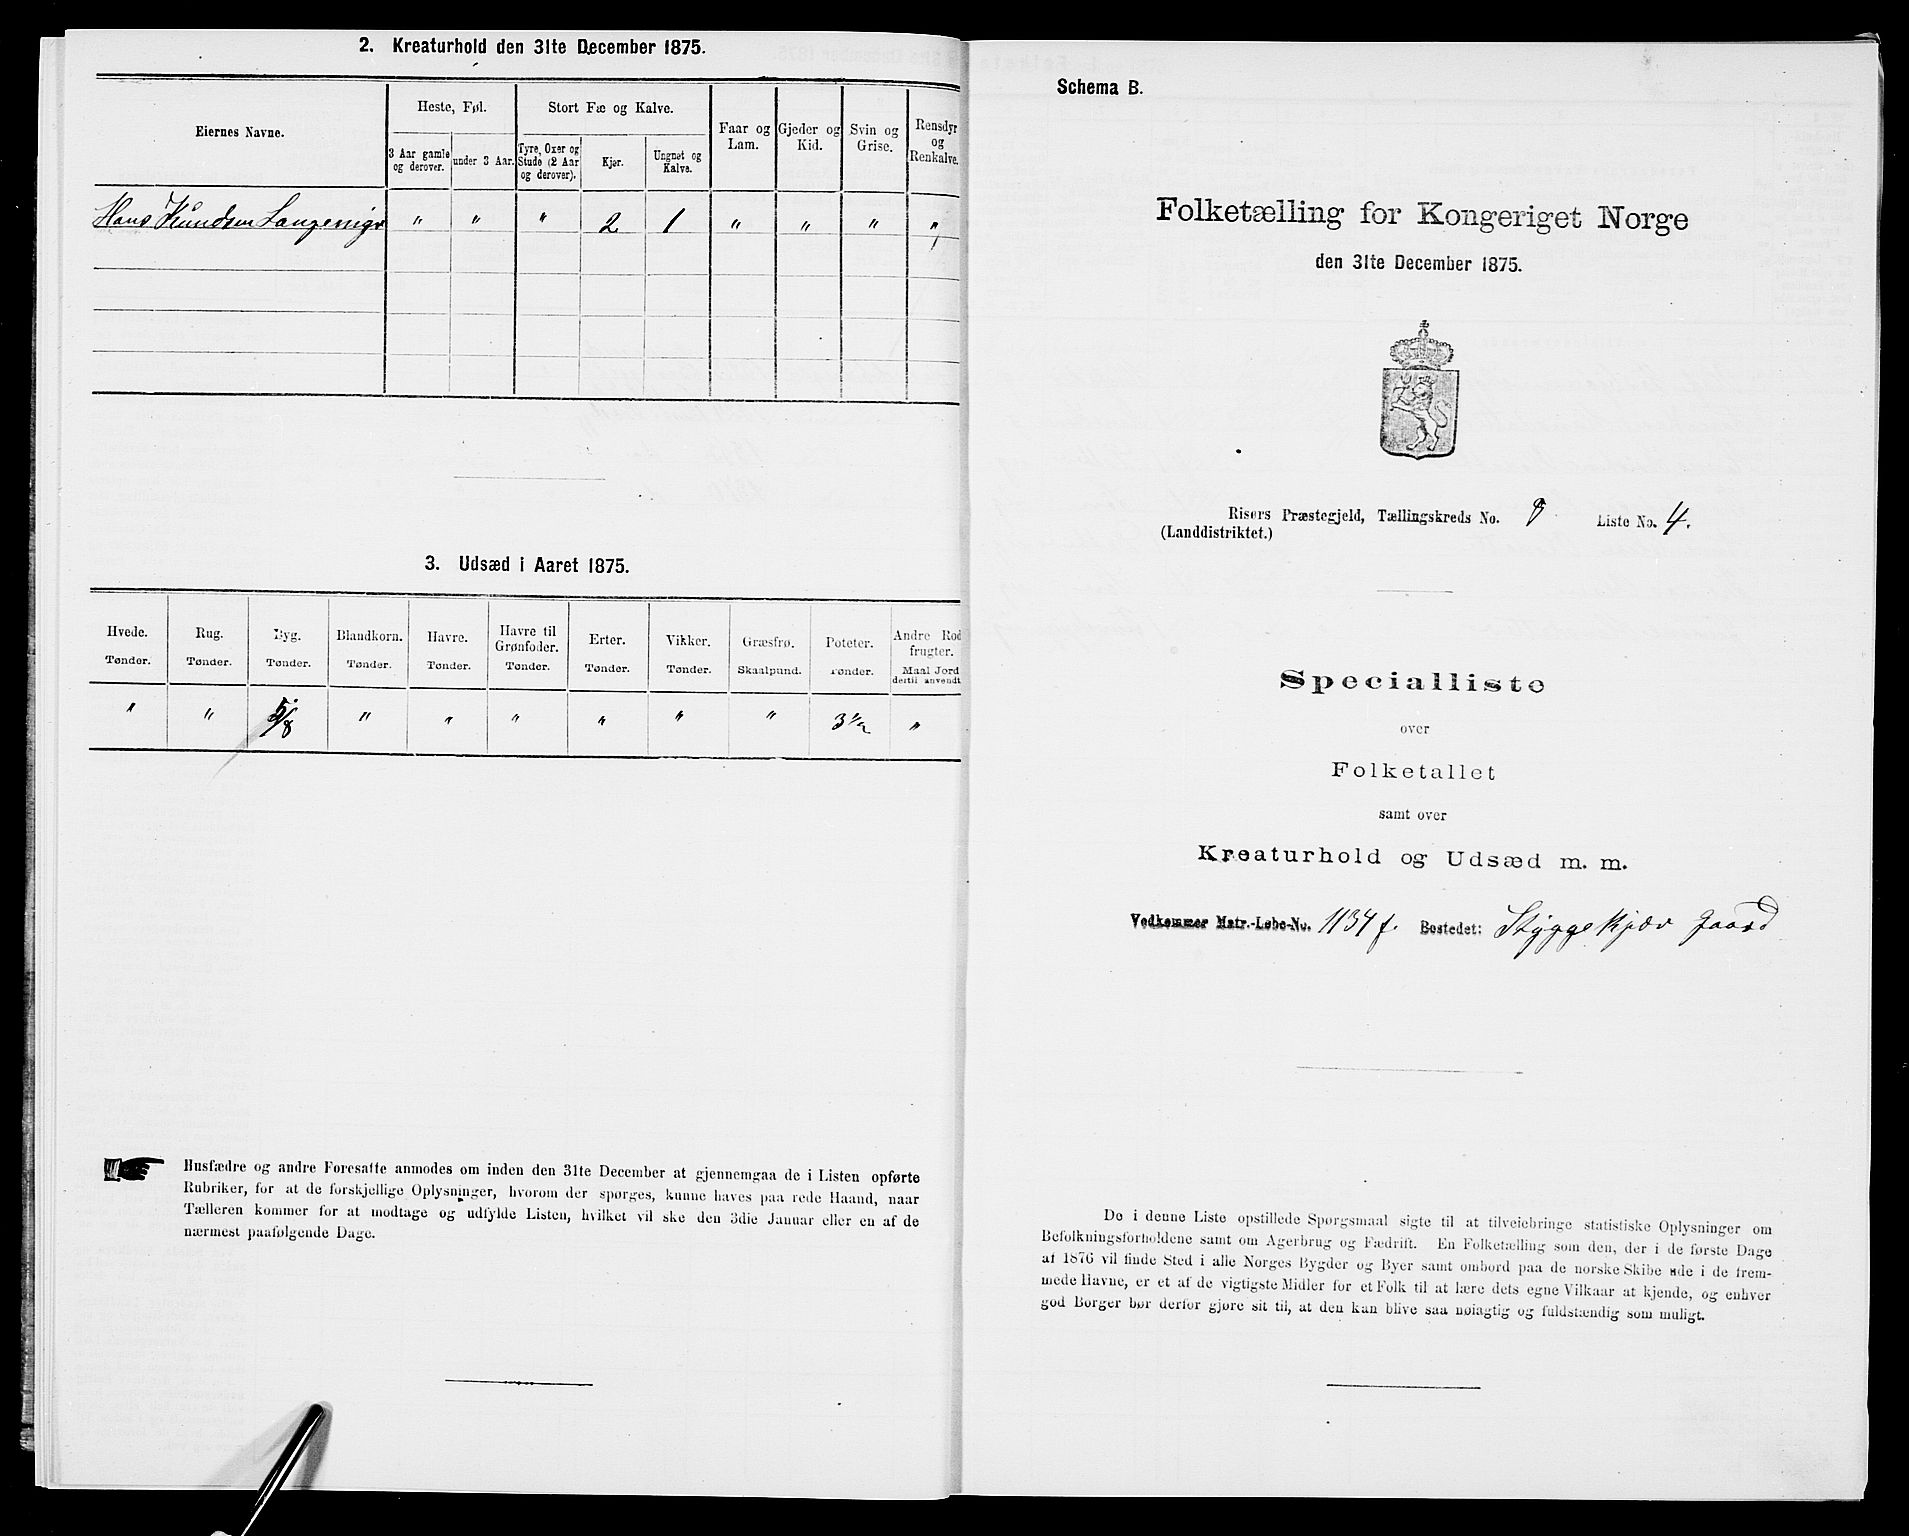 2. Kreaturhold den 31te December 1875.
Eiernes Navne.
Heste, Føl.
Stort Fæ og Kalve.
Faar og Lam.
Gjeder og Kid.
Svin og Grise.
Rensdyr og Renkalve.
3 Aar gamle og derover.
under 3 Aar.
Tyre, Oxer og Stude (2 Aar og derover).
Kjør.
Ungnøt og Kalve.
Hans Knudsen " " " 2 1 " " " "
3. Udsæd i Aaret 1875.
Hvede. Rug. Byg. Blandkorn. Havre. Havre til Grønfoder. Erter. Vikker. Græsfrø. Poteter. Andre Rodfrugter.
Tønder. Tønder. Tønder. Tønder. Tønder. Tønder. Tønder. Tønder. Skaalpund. Tønder. Maal Jord dertil anvendt
" " 5/8 " " " " " " 3 1/2 "
Husfædre og andre Foresatte anmodes om inden den 31te December at gjennemgaa de i Listen opførte
Rubriker, for at de forskjellige Oplysninger, hvorom der spørges, kunne haves paa rede Haand, naar
Tælleren kommer for at modtage og udfylde Listen, hvilket vil ske den 3die Januar eller en af de
nærmest paafølgende Dage.
Schema B.
Folketælling for Kongeriget Norge
den 31te December 1875.
Risørs Præstegjeld, Tællingskreds No. 8. Liste No. 4.
(Landdistriktet.)
Specialliste
over
Folketallet
samt over
Kreaturhold og Udsæd m. m.
Vedkommer Matr.-Løbe-No. 1134 f. Bostedet: Styggekjær gaard
De i denne Liste opstillede Spørgsmaal sigte til at tilveiebringe statistiske Oplysninger om
Befolkningsforholdene samt om Agerbrug og Fædrift. En Folketælling som den, der i de første Dage
af 1876 vil finde Sted i alle Norges Bygder og Byer samt ombord paa de norske Skibe ude i de frem-
mede Havne, er et af de vigtigste Midler for et Folk til at lære dets egne Vilkaar at kjende, og enhver
god Borger bør derfor gjøre sit til, at den kan blive saa nøiagtig og fuldstændig som muligt.